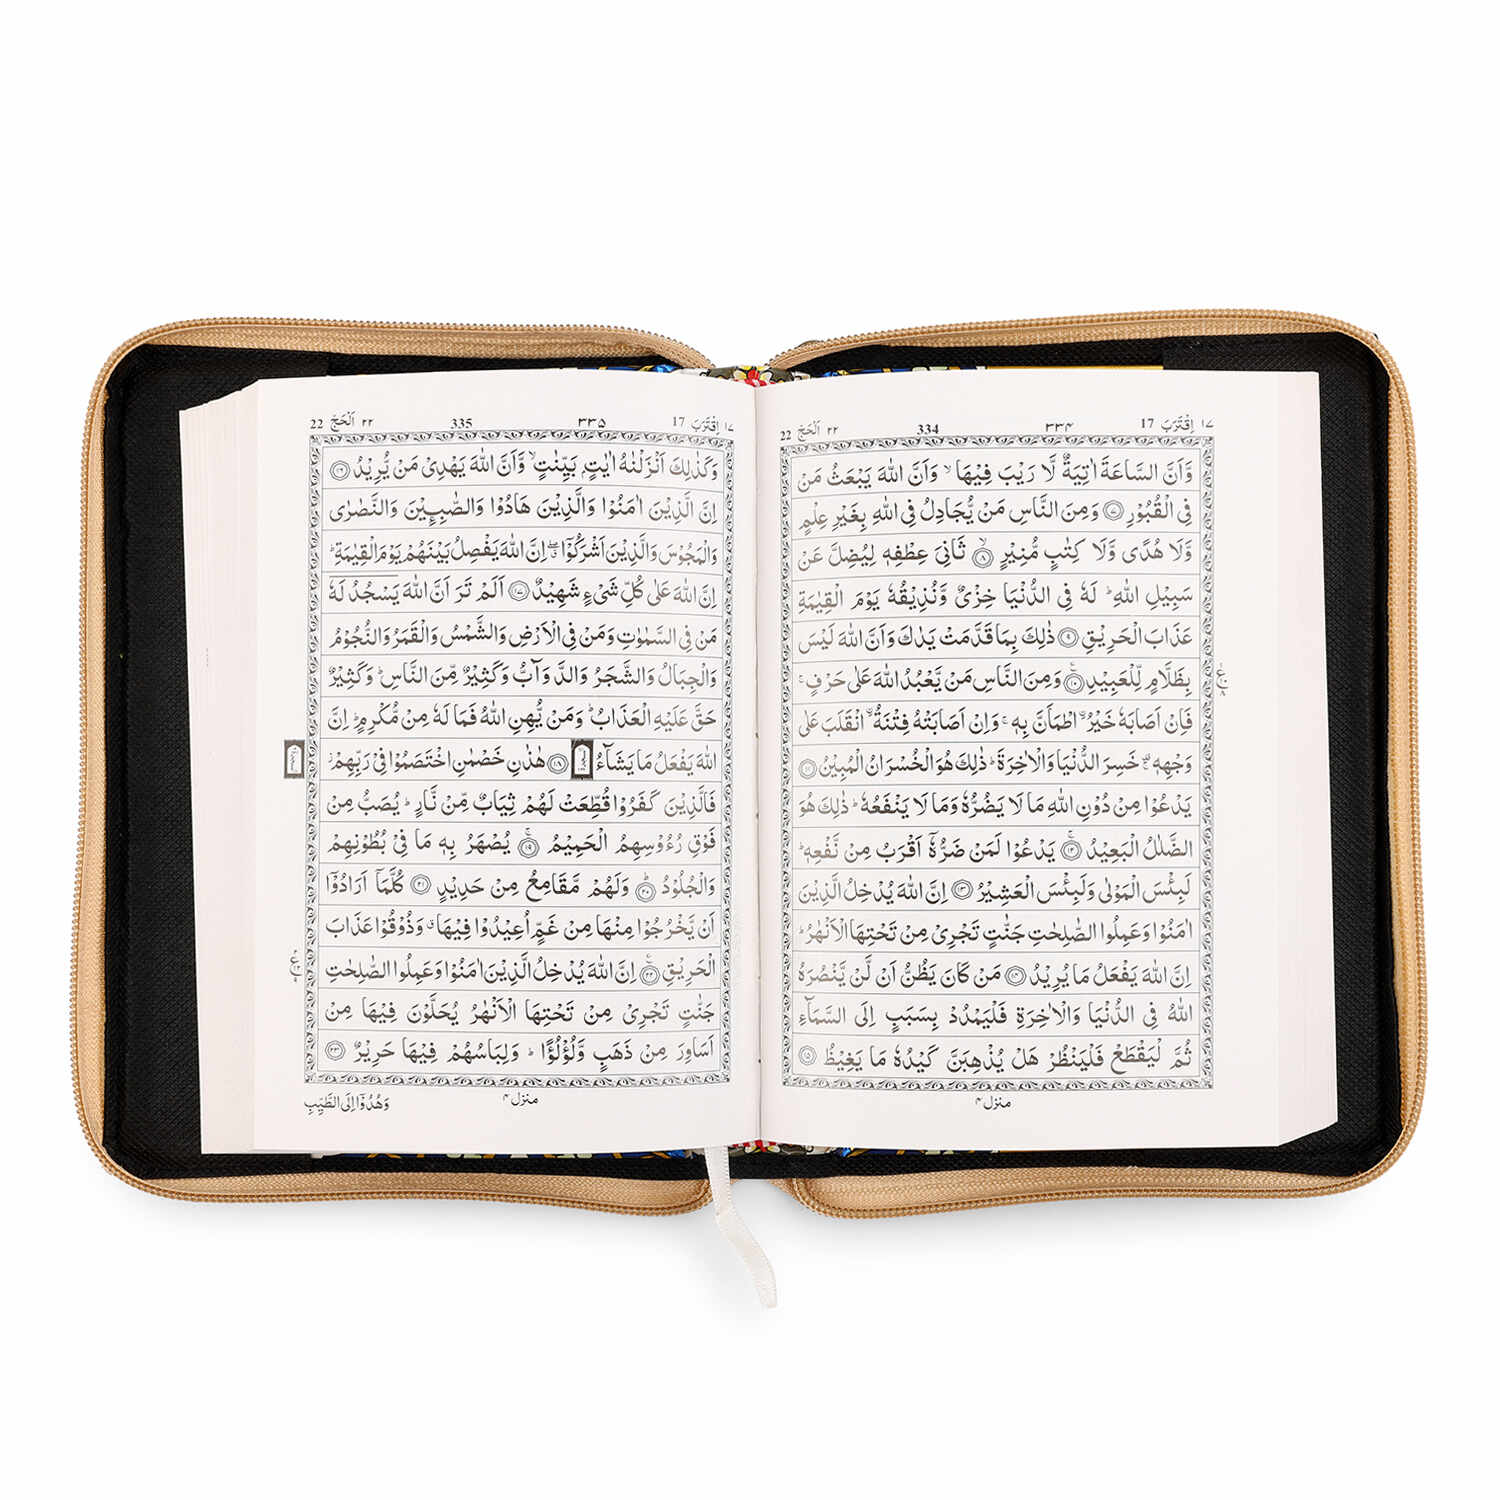 ١٧ اِقْتَرَبَ 17
٣٣٤ 334
٢٢ اَلْحَجّ 22
وَّاَنَّ السَّاعَةَ اٰتِيَةٌ لَّا رَيْبَ فِيْهَا ۙ وَاَنَّ اللّٰهَ يَبْعَثُ مَنْ
فِى الْقُبُوْرِ ۝٧ وَمِنَ النَّاسِ مَنْ يُّجَادِلُ فِى اللّٰهِ بِغَيْرِ عِلْمٍ
وَّلَا هُدًى وَّلَا كِتٰبٍ مُّنِيْرٍ ۝٨ۙ ثَانِىَ عِطْفِهٖ لِيُضِلَّ عَنْ
سَبِيْلِ اللّٰهِ ؕ لَهٗ فِى الدُّنْيَا خِزْىٌ وَّنُذِيْقُهٗ يَوْمَ الْقِيٰمَةِ
عَذَابَ الْحَرِيْقِ ۝٩ ذٰلِكَ بِمَا قَدَّمَتْ يَدٰكَ وَاَنَّ اللّٰهَ لَيْسَ
بِظَلَّامٍ لِّلْعَبِيْدِ ۝١٠ۧ وَمِنَ النَّاسِ مَنْ يَّعْبُدُ اللّٰهَ عَلٰى حَرْفٍ ۚ
فَاِنْ اَصَابَهٗ خَيْرُ ۨ اطْمَاَنَّ بِهٖ ۚ وَاِنْ اَصَابَتْهُ فِتْنَةُ ۨ انْقَلَبَ عَلٰى
وَجْهِهٖ ۚ خَسِرَ الدُّنْيَا وَالْاٰخِرَةَ ؕ ذٰلِكَ هُوَ الْخُسْرَانُ الْمُبِيْنُ ۝١١
يَدْعُوْا مِنْ دُوْنِ اللّٰهِ مَا لَا يَضُرُّهٗ وَمَا لَا يَنْفَعُهٗ ؕ ذٰلِكَ هُوَ
الضَّلٰلُ الْبَعِيْدُ ۝١٢ۚ يَدْعُوْا لَمَنْ ضَرُّهٗۤ اَقْرَبُ مِنْ نَّفْعِهٖ ؕ
لَبِئْسَ الْمَوْلٰى وَلَبِئْسَ الْعَشِيْرُ ۝١٣ اِنَّ اللّٰهَ يُدْخِلُ الَّذِيْنَ
اٰمَنُوْا وَعَمِلُوا الصّٰلِحٰتِ جَنّٰتٍ تَجْرِىْ مِنْ تَحْتِهَا الْاَنْهٰرُ ؕ
اِنَّ اللّٰهَ يَفْعَلُ مَا يُرِيْدُ ۝١٤ مَنْ كَانَ يَظُنُّ اَنْ لَّنْ يَّنْصُرَهُ
اللّٰهُ فِى الدُّنْيَا وَالْاٰخِرَةِ فَلْيَمْدُدْ بِسَبَبٍ اِلَى السَّمَآءِ
ثُمَّ لْيَقْطَعْ فَلْيَنْظُرْ هَلْ يُذْهِبَنَّ كَيْدُهٗ مَا يَغِيْظُ ۝١٥
منزل ٤
١٧ اِقْتَرَبَ 17
٣٣٥ 335
٢٢ اَلْحَجّ 22
وَكَذٰلِكَ اَنْزَلْنٰهُ اٰيٰتٍۭ بَيِّنٰتٍ ۙ وَّاَنَّ اللّٰهَ يَهْدِىْ مَنْ يُّرِيْدُ ۝١٦
اِنَّ الَّذِيْنَ اٰمَنُوْا وَالَّذِيْنَ هَادُوْا وَالصّٰبِـِٕيْنَ وَالنَّصٰرٰى
وَالْمَجُوْسَ وَالَّذِيْنَ اَشْرَكُوْۤا ۖ اِنَّ اللّٰهَ يَفْصِلُ بَيْنَهُمْ يَوْمَ الْقِيٰمَةِ ؕ
اِنَّ اللّٰهَ عَلٰى كُلِّ شَىْءٍ شَهِيْدٌ ۝١٧ اَلَمْ تَرَ اَنَّ اللّٰهَ يَسْجُدُ لَهٗ
مَنْ فِى السَّمٰوٰتِ وَمَنْ فِى الْاَرْضِ وَالشَّمْسُ وَالْقَمَرُ وَالنُّجُوْمُ
وَالْجِبَالُ وَالشَّجَرُ وَالدَّوَآبُّ وَكَثِيْرٌ مِّنَ النَّاسِ ؕ وَكَثِيْرٌ
حَقَّ عَلَيْهِ الْعَذَابُ ؕ وَمَنْ يُّهِنِ اللّٰهُ فَمَا لَهٗ مِنْ مُّكْرِمٍ ؕ اِنَّ
اللّٰهَ يَفْعَلُ مَا يَشَآءُ ۝١٨ هٰذٰنِ خَصْمٰنِ اخْتَصَمُوْا فِىْ رَبِّهِمْ ؗ
فَالَّذِيْنَ كَفَرُوْا قُطِّعَتْ لَهُمْ ثِيَابٌ مِّنْ نَّارٍ ؕ يُصَبُّ مِنْ
فَوْقِ رُءُوْسِهِمُ الْحَمِيْمُ ۝١٩ۚ يُصْهَرُ بِهٖ مَا فِىْ بُطُوْنِهِمْ
وَالْجُلُوْدُ ۝٢٠ؕ وَلَهُمْ مَّقَامِعُ مِنْ حَدِيْدٍ ۝٢١ كُلَّمَاۤ اَرَادُوْۤا
اَنْ يَّخْرُجُوْا مِنْهَا مِنْ غَمٍّ اُعِيْدُوْا فِيْهَا ۗ وَذُوْقُوْا عَذَابَ
الْحَرِيْقِ ۝٢٢ۧ اِنَّ اللّٰهَ يُدْخِلُ الَّذِيْنَ اٰمَنُوْا وَعَمِلُوا الصّٰلِحٰتِ
جَنّٰتٍ تَجْرِىْ مِنْ تَحْتِهَا الْاَنْهٰرُ يُحَلَّوْنَ فِيْهَا مِنْ
اَسَاوِرَ مِنْ ذَهَبٍ وَّلُؤْلُؤًا ؕ وَلِبَاسُهُمْ فِيْهَا حَرِيْرٌ ۝٢٣
منزل ٤
وَهُدُوْۤا اِلَى الطَّيِّبِ